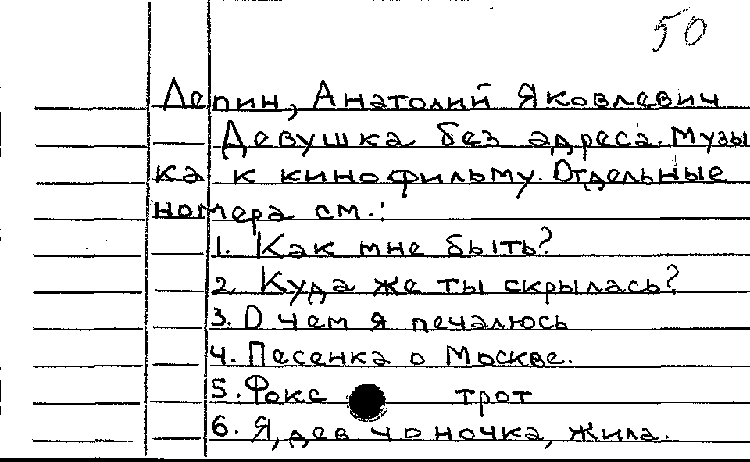 50
Лепин, Анатолий Яковлевич
Девушка без адреса. Музы
ка к кинофильму. Отдельные
номера см.:
1. Как мне быть?
2. Куда же ты скрылась?
3. О чем я печалюсь
4. Песенка о Москве.
5. Фокс трот
6. Я, девчоночка, жила.